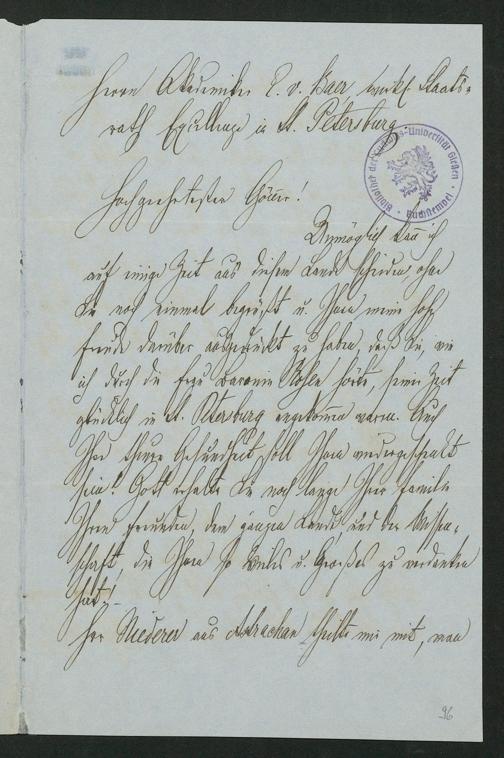 Herrn Akademiker E. v. Baer wirkl. Staats-
rath Excellenz in St. Petersburg
Bibliothek der Ludwigs-Universität Gießen
Buchstempel
Hochgeehrtester Gönner!
Unmöglich kann ich
auf einige Zeit aus diesem Lande scheiden, ohne
Sie noch einmal begrüßt u. Ihnen meine hohe
Freude darüber ausgedrückt zu haben, daß Sie, wie
ich durch die Frau Baronin hörte, seiner Zeit
glücklich in St. Petersburg angekommen waren. Auch
Ihre theure Gesundheit soll Ihnen wiedergeschenkt
sein! Gott erhalte Sie noch lange Ihrer Familie
Ihren Freunden, dem ganzen Lande, und der Wissen-
schaft, die Ihnen so Vieles u. Großes zu verdanken
hat! -
Herr Niederer aus Astrachan theilte mir mit, wenn
96